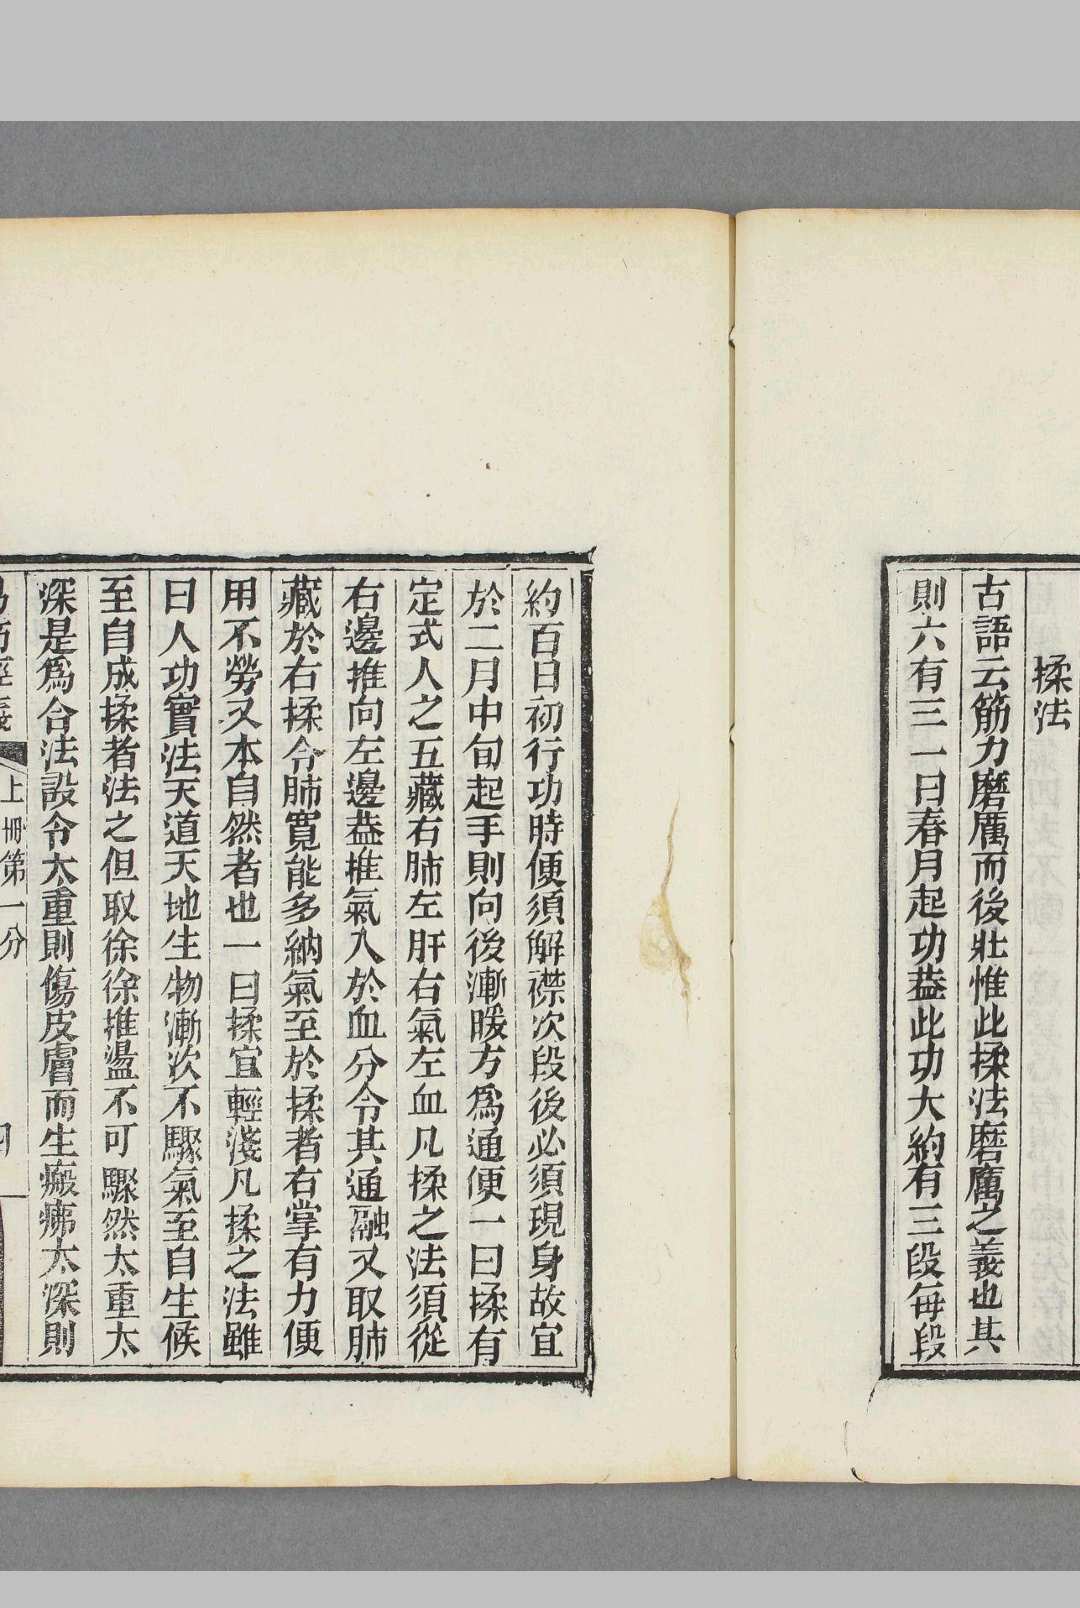 揉法
古語云筋力磨厲而後壯惟此揉法磨厲之義也其
則六有三一曰春月起功葢此功大約有三段每段
約百日初行功時便須解襟次段後必須現身故宜
於二月中旬起手則向後漸暖方爲通便一曰揉有
定式人之五藏右肺左肝右氣左血凡揉之法須從
右邊推向左邊葢推氣入於血分令其通融又取肺
藏於右揉令肺寬能多納氣至於揉者右掌有力便
用不勞又本自然者也一曰揉宜輕淺凡揉之法雖
曰人功實法天道天地生物漸次不驟氣至自生候
至自成揉者法之但取徐徐推盪不可驟然太重太
深是爲合法設令太重則傷皮膚而生癜疿太深則
易筋經義 上冊第一分 四